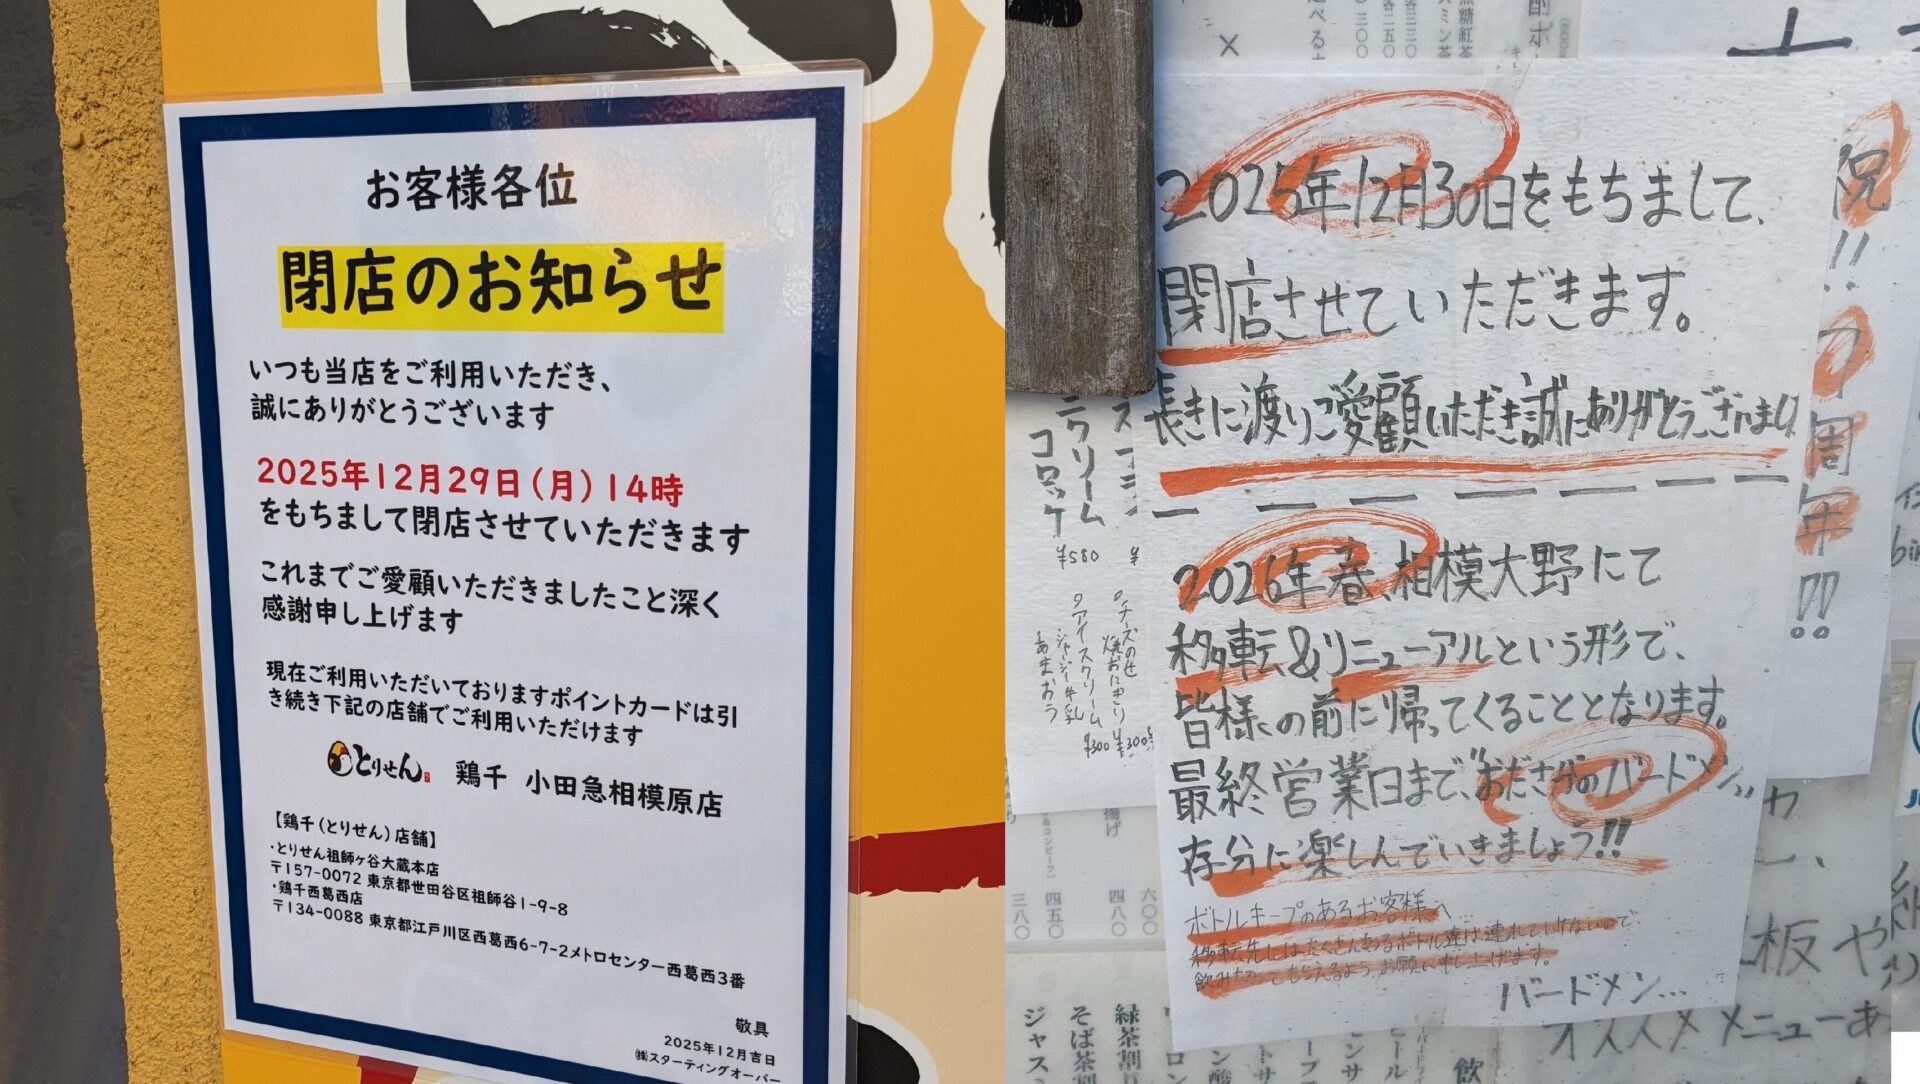 お客様各位
閉店のお知らせ
いつも当店をご利用いただき、
誠にありがとうございます
2025年12月29日(月)14時
をもちまして閉店させていただきます
これまでご愛顧いただきましたこと深く
感謝申し上げます
現在ご利用いただいておりますポイントカードは引
き続き下記の店舗でご利用いただけます
とりせん 鶏千 小田急相模原店
【鶏千(とりせん)店舗】
・とりせん祖師ヶ谷大蔵本店
〒157-0072 東京都世田谷区祖師谷1-9-8
・鶏千西葛西店
〒134-0088 東京都江戸川区西葛西6-7-2メトロセンター西葛西3番
敬具
2025年12月吉日
㈱スターティングオーバー
2025年12月30日をもちまして、
閉店させていただきます。
長きに渡りご愛顧いただき誠にありがとうございました
2026年春 相模大野にて
移転&リニューアルという形で、
皆様の前に帰ってくることとなります。
最終営業日まで、"おださがのバードメン"
存分に楽しんでいきましょう!!
ボトルキープのあるお客様へ…
移転先にはたくさんあるボトル達は連れていけないので
飲みきってもらえるようお願い申し上げます。
バードメン…
祝!!7周年!!
クリーム
コロッケ
¥580
チーズのせ
焼おにぎり
アイスクリーム
ジャージー牛乳
あまおう
¥300
六〇〇
四八〇
四五〇
三八〇
緑茶割
そば茶割
ジャス
飲
板や
オススメメニューあ